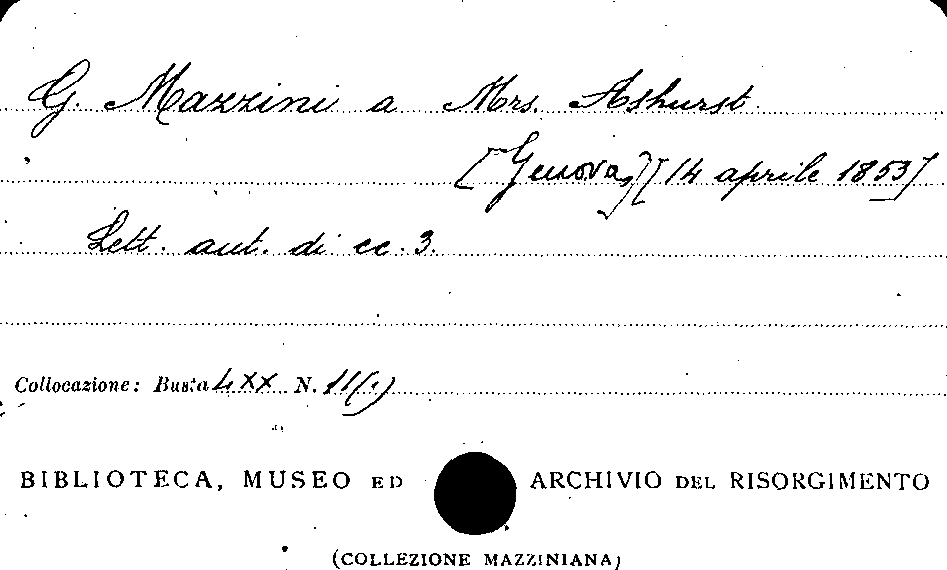 G. Mazzini a Mrs. Ashurst
[Genova,] [14 aprile 1853]
Lett. aut. di cc. 3.
Collocazione: Busta LXX N. 11(1)
BIBLIOTECA, MUSEO ED ARCHIVIO DEL RISORGIMENTO
(COLLEZIONE MAZZINIANA)